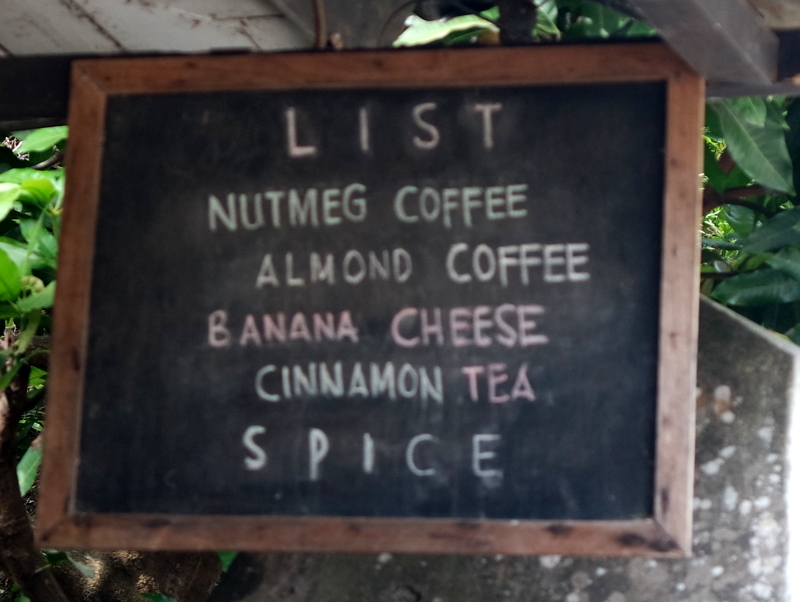 LIST
NUTMEG COFFEE
ALMOND COFFEE
BANANA CHEESE
CINNAMON TEA
SPICE